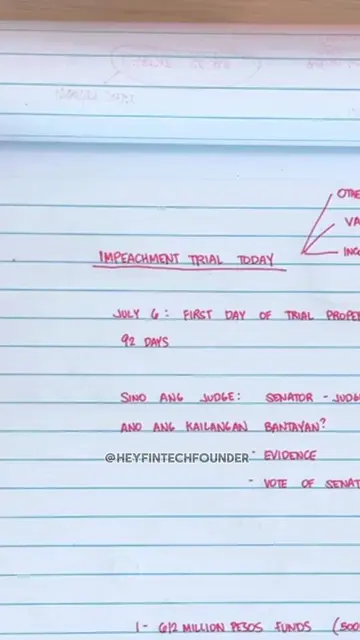 IMPEACHMENT TRIAL TODAY
JULY 6: FIRST DAY OF TRIAL PROPE
92 DAYS
SINO ANG JUDGE: SENATOR - JUDG
ANO ANG KAILANGAN BANTAYAN?
@HEYFINTECHFOUNDER
- EVIDENCE
- VOTE OF SENAT
OTHE
VA
INC
1- 612 MILLION PESOS FUNDS (500